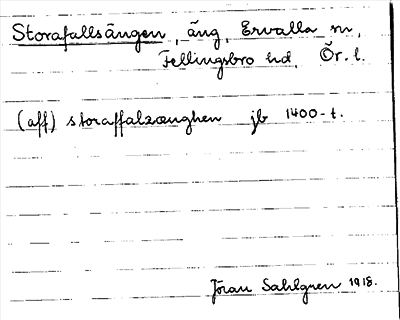 Storafallsängen, äng, Ervalla sn,
Fellingsbro hd, Ör. l.
(aff) storaffalzænghen jb 1400-t.
Jöran Sahlgren 1918.